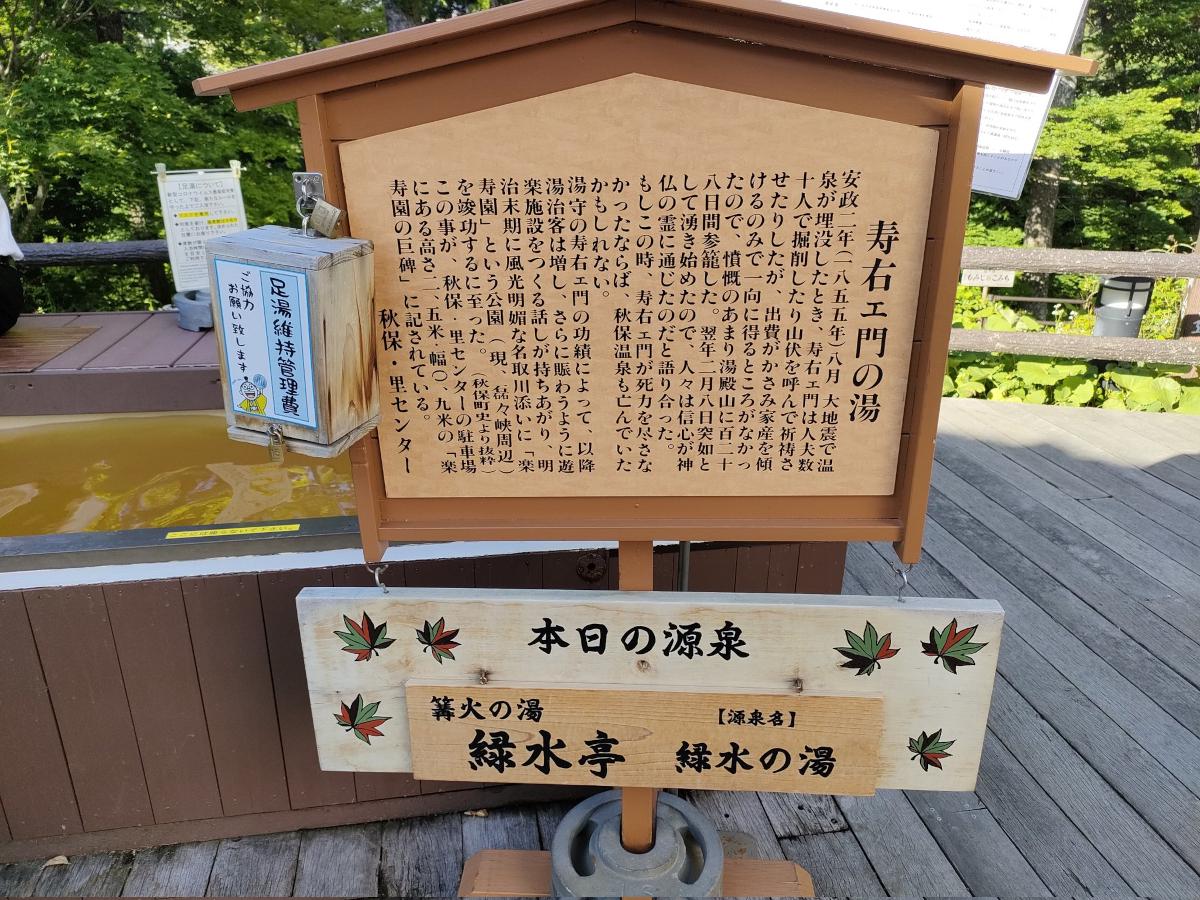 寿右ェ門の湯
安政二年(一八五五年)八月 大地震で温
泉が埋没したとき、寿右ェ門は人夫数
十人で掘削したり山伏を呼んで祈祷さ
せたりしたが、出費がかさみ家産を傾
けるのみで一向に得るところがなかっ
たので、憤慨のあまり湯殿山に百二十
八日間参籠した。翌年二月八日突如と
して湧き始めたので、人々は信心が神
仏の霊に通じたのだと語り合った。
もしこの時、寿右ェ門が死力を尽さな
かったならば、秋保温泉も亡んでいた
かもしれない。
湯守の寿右ェ門の功績によって、以降
湯治客は増し、さらに賑わうように遊
楽施設をつくる話しが持ちあがり、明
治末期に風光明媚な名取川添いに「楽
寿園」という公園(現、磊々峡周辺)
を竣功するに至った。(秋保町史より抜粋)
この事が、秋保・里センターの駐車場
にある高さ二、五米・幅〇、九米の「楽
寿園の巨碑」に記されている。
秋保・里センター
足湯維持管理費
ご協力
お願い致します
【足湯について】
ここには座らないで下さい。
もみじのこみち
本日の源泉
篝火の湯
緑水亭
【源泉名】
緑水の湯